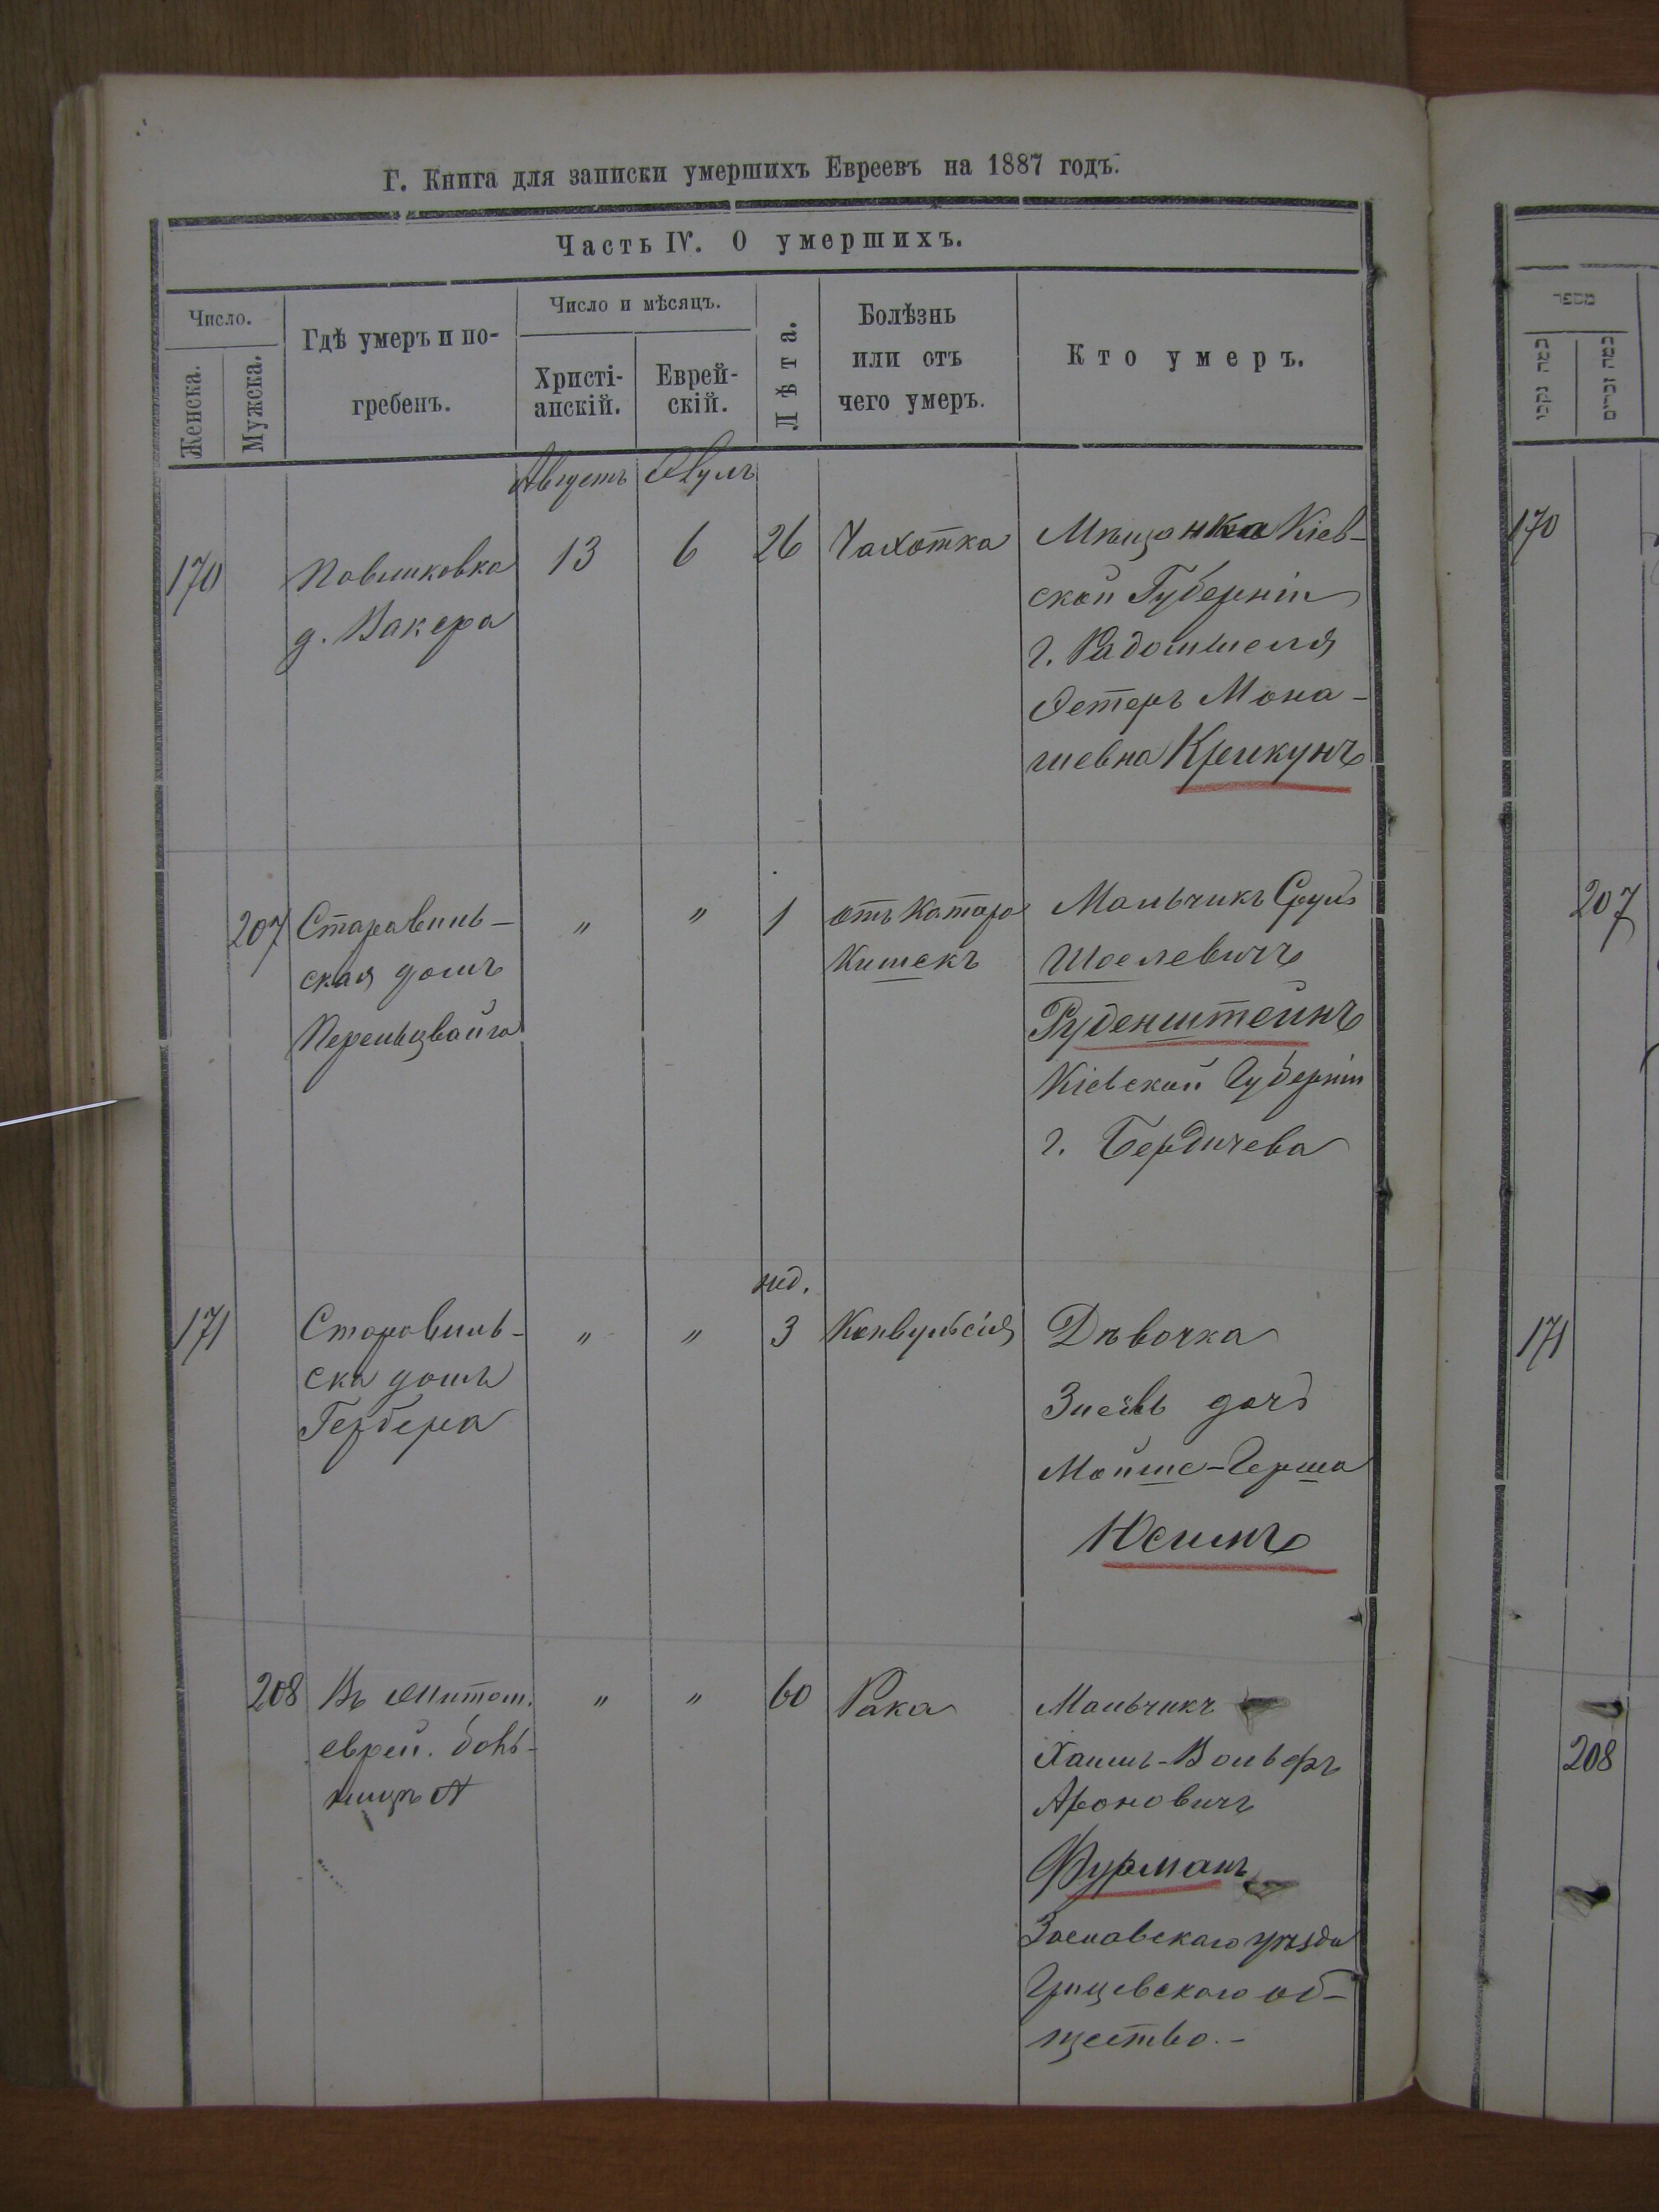 Г. Книга для записки умершихъ Евреевъ на 1887 годъ.
Часть IV. О умершихъ.
Число.
Женска.
Мужска.
Гдѣ умеръ и по-
гребенъ.
Число и мѣсяцъ.
Христі-
анскій.
Еврей-
скій.
Лѣта.
Болѣзнь
или отъ
чего умеръ.
Кто умеръ.
Августъ Элулъ
170
Павликовка
д. Вакера
13
6
26
Чахотка
Мѣщанка Кіев-
ской Губерніи
г. Радомышеля
Эстеръ Мона-
шевна Крикунъ
207
Старовиль-
ская домъ
Перельцвайга
"
"
1
отъ Катара
Кишекъ
Мальчикъ Сруль
Шоелевичъ
Руденштейнъ
Кіевской Губерніи
г. Бердичева
171
Старовиль-
ска домъ
Гербера
"
"
нед.
3
Конвульсія
Дѣвочка
дочь
Мойше-Герша
Юсимъ
208
Въ Житом.
еврей. боль-
ницѣ
"
"
60
Рака
Мальчикъ
Хаимъ-Вольфъ
Ароновичъ
Фурманъ
Заславскаго уѣзда
Грицевскаго об-
щество.-
מספר
כמה נקבו
כמה זכרים
170
207
171
208